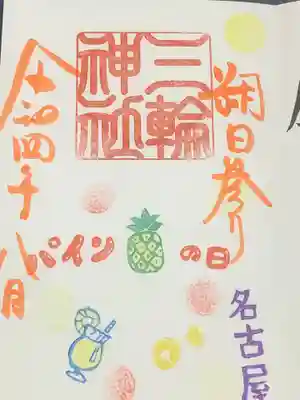 朔日参り
三輪
神社
令和四年
八月
パインの日
名古屋